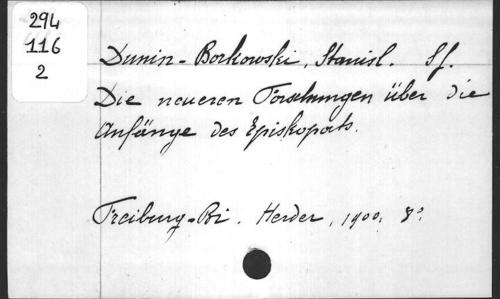 294
116
2
Dunin-Borkowski, Stanisl. Sf.
Die neueren Forschungen über die
Anfänge des Episkopats.
Freiburg-Bri. Herder, 1900. 8°.